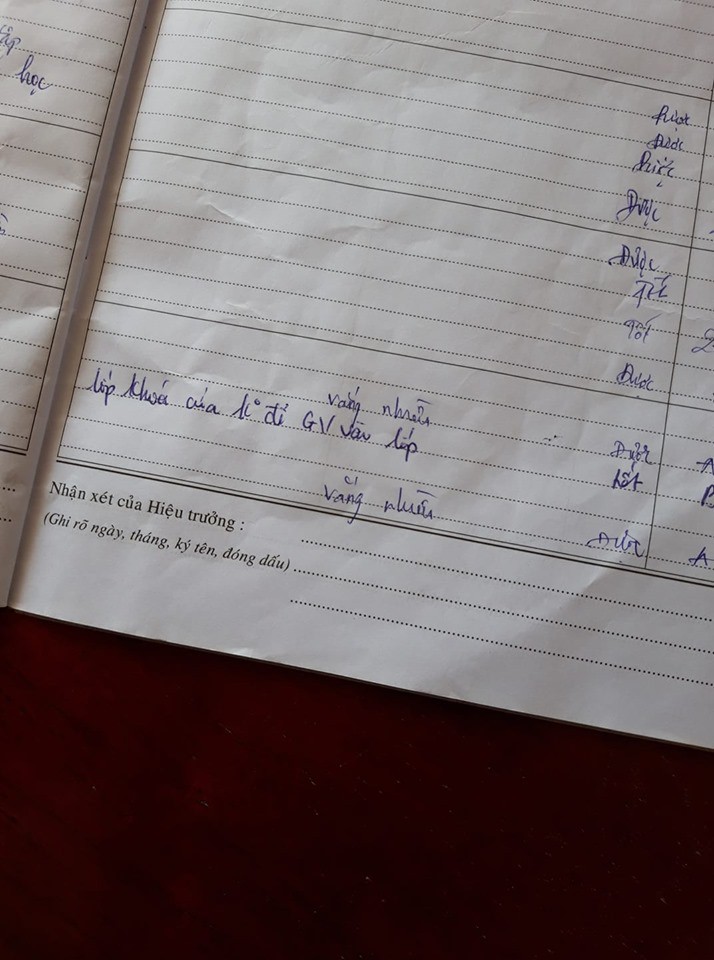 học
Được
Được
Được
Tốt
Được
vắng nhiều
lớp khoá của k° để GV vào lớp
Được
tốt
A
B
vắng nhiều
Được
A
Nhận xét của Hiệu trưởng :
(Ghi rõ ngày, tháng, ký tên, đóng dấu)